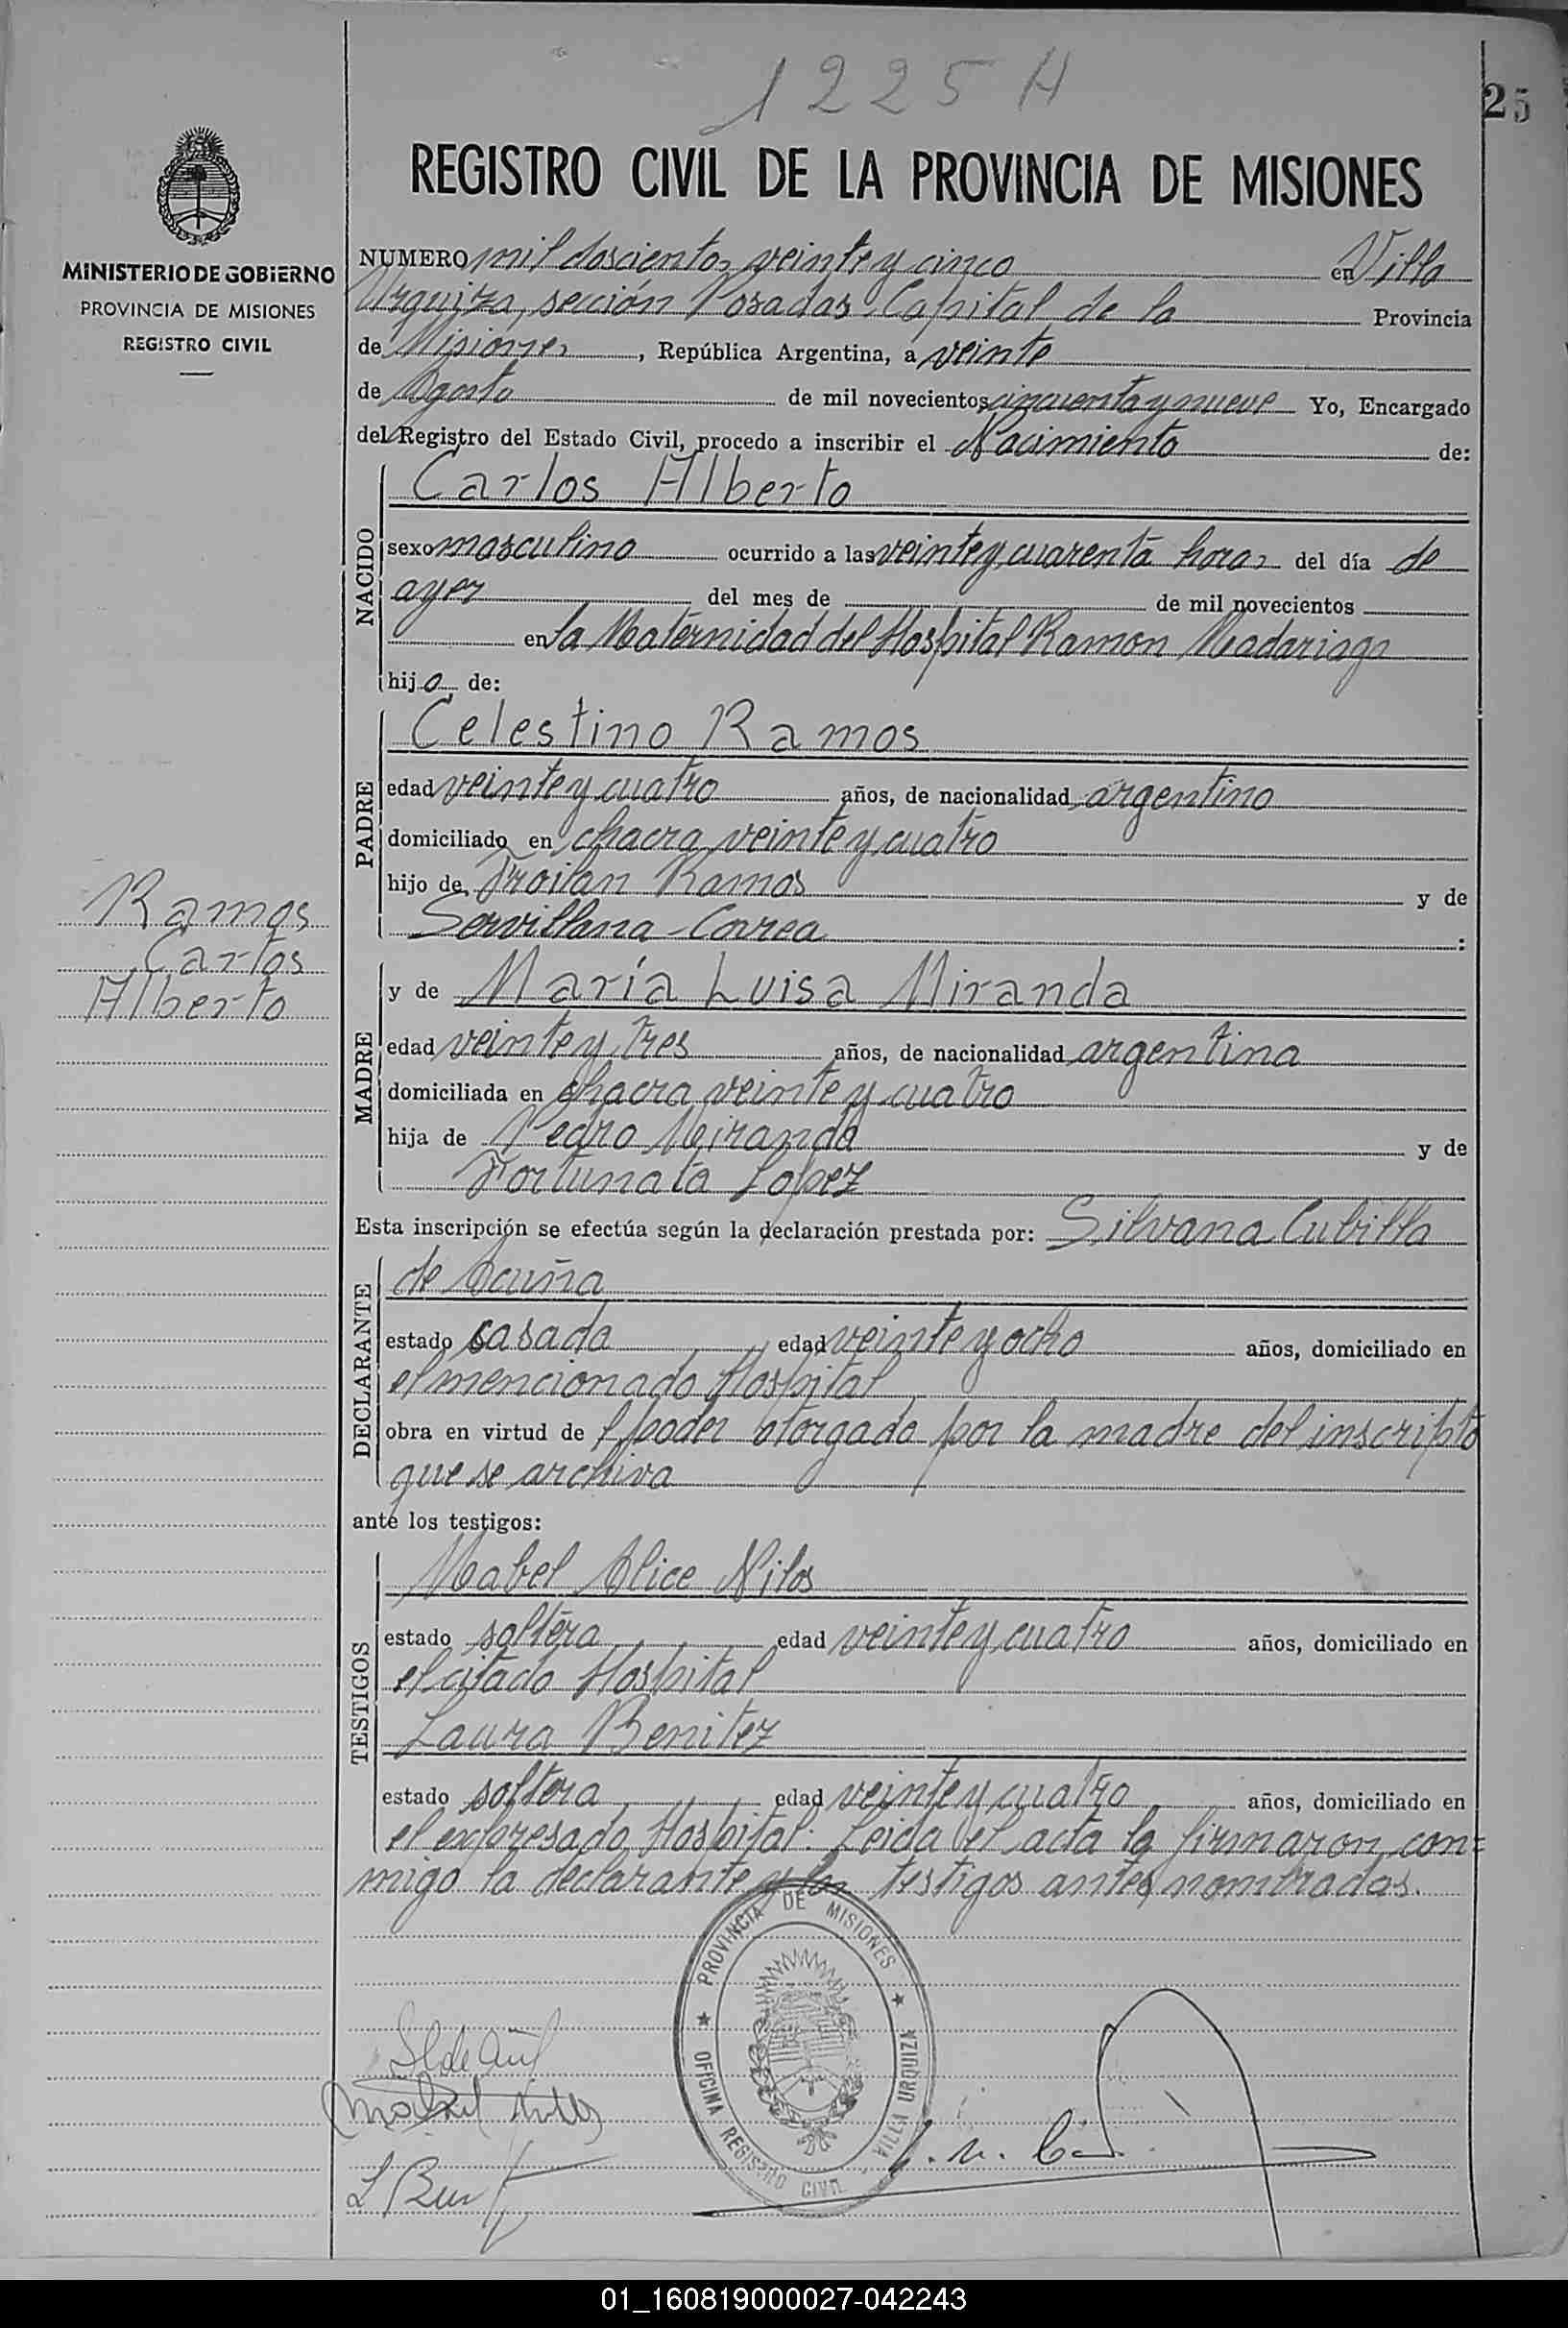 1225 H
25
REGISTRO CIVIL DE LA PROVINCIA DE MISIONES
MINISTERIO DE GOBIERNO
PROVINCIA DE MISIONES
REGISTRO CIVIL
NUMERO mil doscientos veinte y cinco en Villa
Urquiza, sección Posadas Capital de la Provincia
de Misiones, República Argentina, a veinte
de Agosto de mil novecientos cincuenta y nueve Yo, Encargado
del Registro del Estado Civil, procedo a inscribir el Nacimiento de:
NACIDO
Carlos Alberto
sexo masculino ocurrido a las veinte y cuarenta horas del día de
ayer del mes de de mil novecientos
en la Maternidad del Hospital Ramon Madariaga
hijo de:
PADRE
Celestino Ramos
edad veinte y cuatro años, de nacionalidad argentino
domiciliado en chacra veinte y cuatro
hijo de Froilan Ramos y de
Servillana Correa :
Ramos
Carlos
Alberto
MADRE
y de María Luisa Miranda
edad veinte y tres años, de nacionalidad argentina
domiciliada en chacra veinte y cuatro
hija de Pedro Miranda y de
Fortunata Lopez
Esta inscripción se efectúa según la declaración prestada por: Silvana Cubilla
DECLARANTE
de Acuña
estado casada edad veinte y ocho años, domiciliado en
el mencionado Hospital
obra en virtud de l poder otorgado por la madre del inscripto
que se archiva
ante los testigos:
TESTIGOS
Mabel Alice Nilos
estado soltera edad veinte y cuatro años, domiciliado en
el citado Hospital
Laura Benitez
estado soltera edad veinte y cuatro años, domiciliado en
el expresado Hospital. Leida el acta la firmaron con=
migo la declarante y los testigos antes nombradas.
PROVINCIA DE MISIONES
OFICINA REGISTRO CIVIL VILLA URQUIZA
01_160819000027-042243